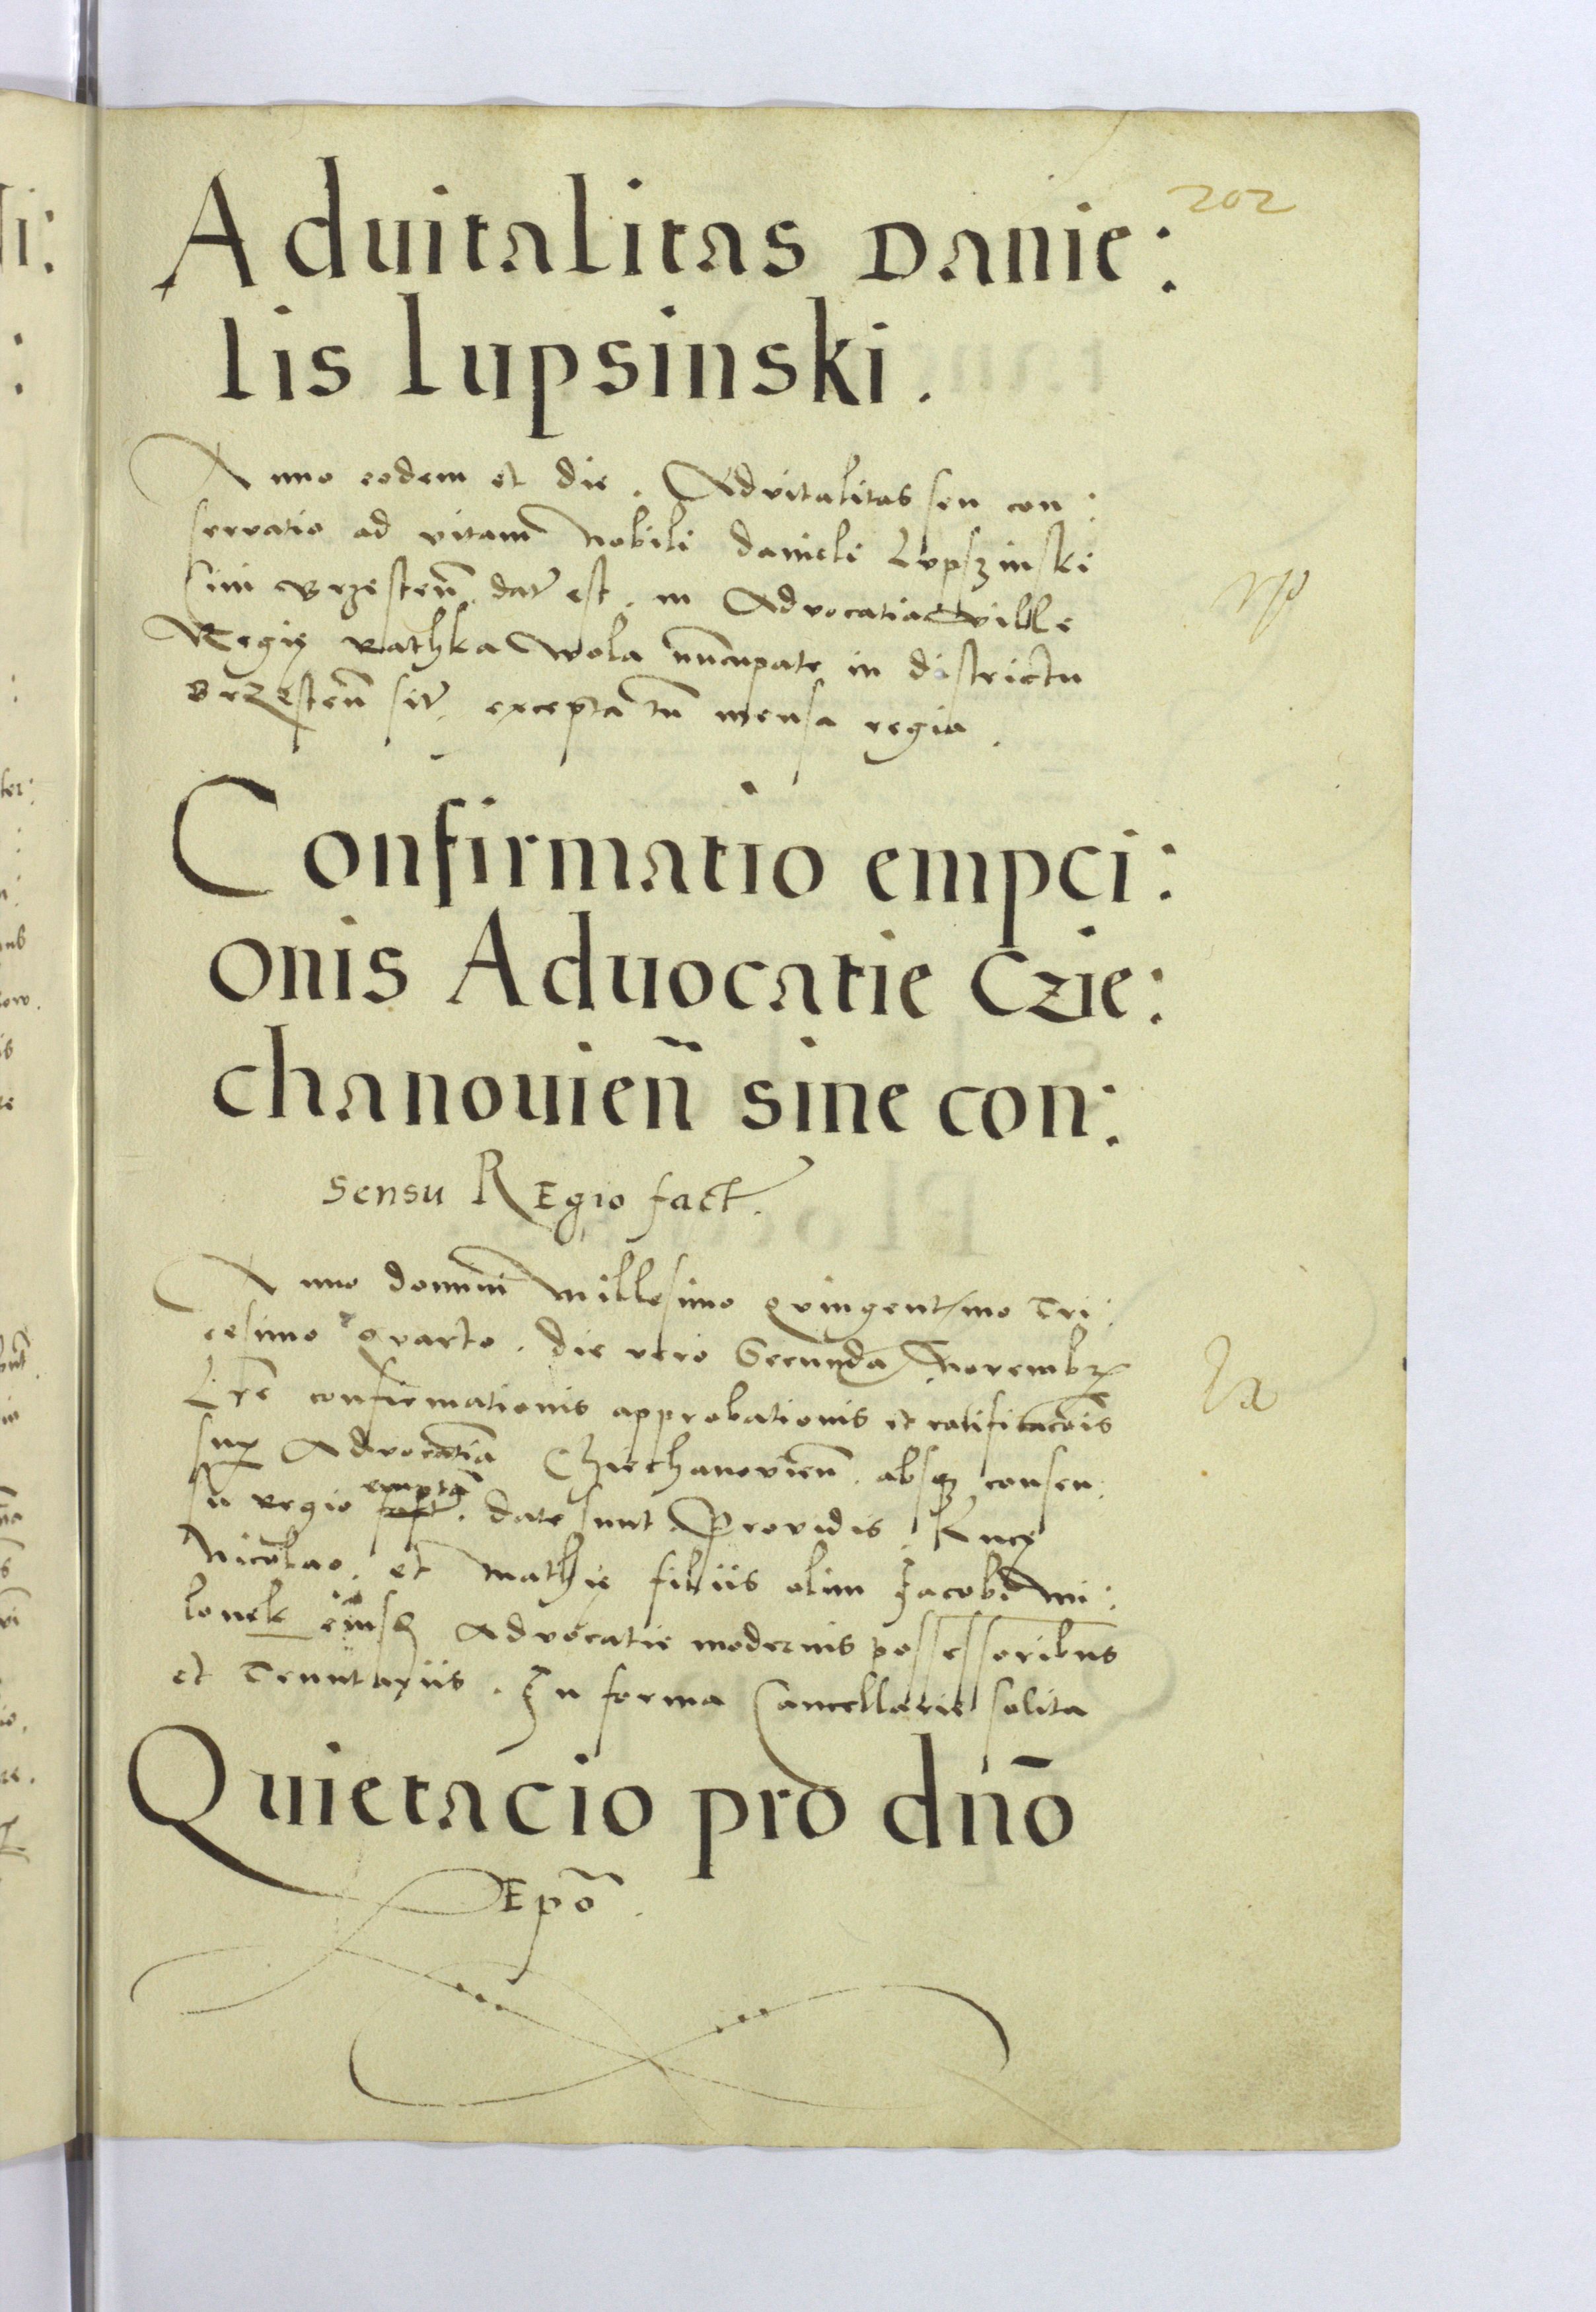 202
Aduitalitas Danie:
lis lupsinski.
Anno eodem et die. Aduitalitas seu con:
servatio ad vitam Nobili danieli Lupszinski
Brzesteñ. dať est. in Advocatia ville
Regię Rathka Wola nuncupate in districtu
Brzesteñ siť. excepta tñ mensa regia.
Confirmatio empci:
onis Aduocatie Czie:
chanouieñ sine con:
sensu REgio fact.
Anno domini Millesimo Quingentesimo Tri:
cesimo Quarto. die vero Secunda Novembr
Lrē confirmationis approbationis et ratificacōis
sup Advocatiā Cziechanovieñ. absqz consen:
su regio emptā. date sunt. Providis.
Nicolao. et Mathię filiis olim Jacobi Mi:
lonek eiusd Advocatie modernis possessoribus
et Tenutariis. In forma Cancellarie solita
Quietacio pro dño
Epō.